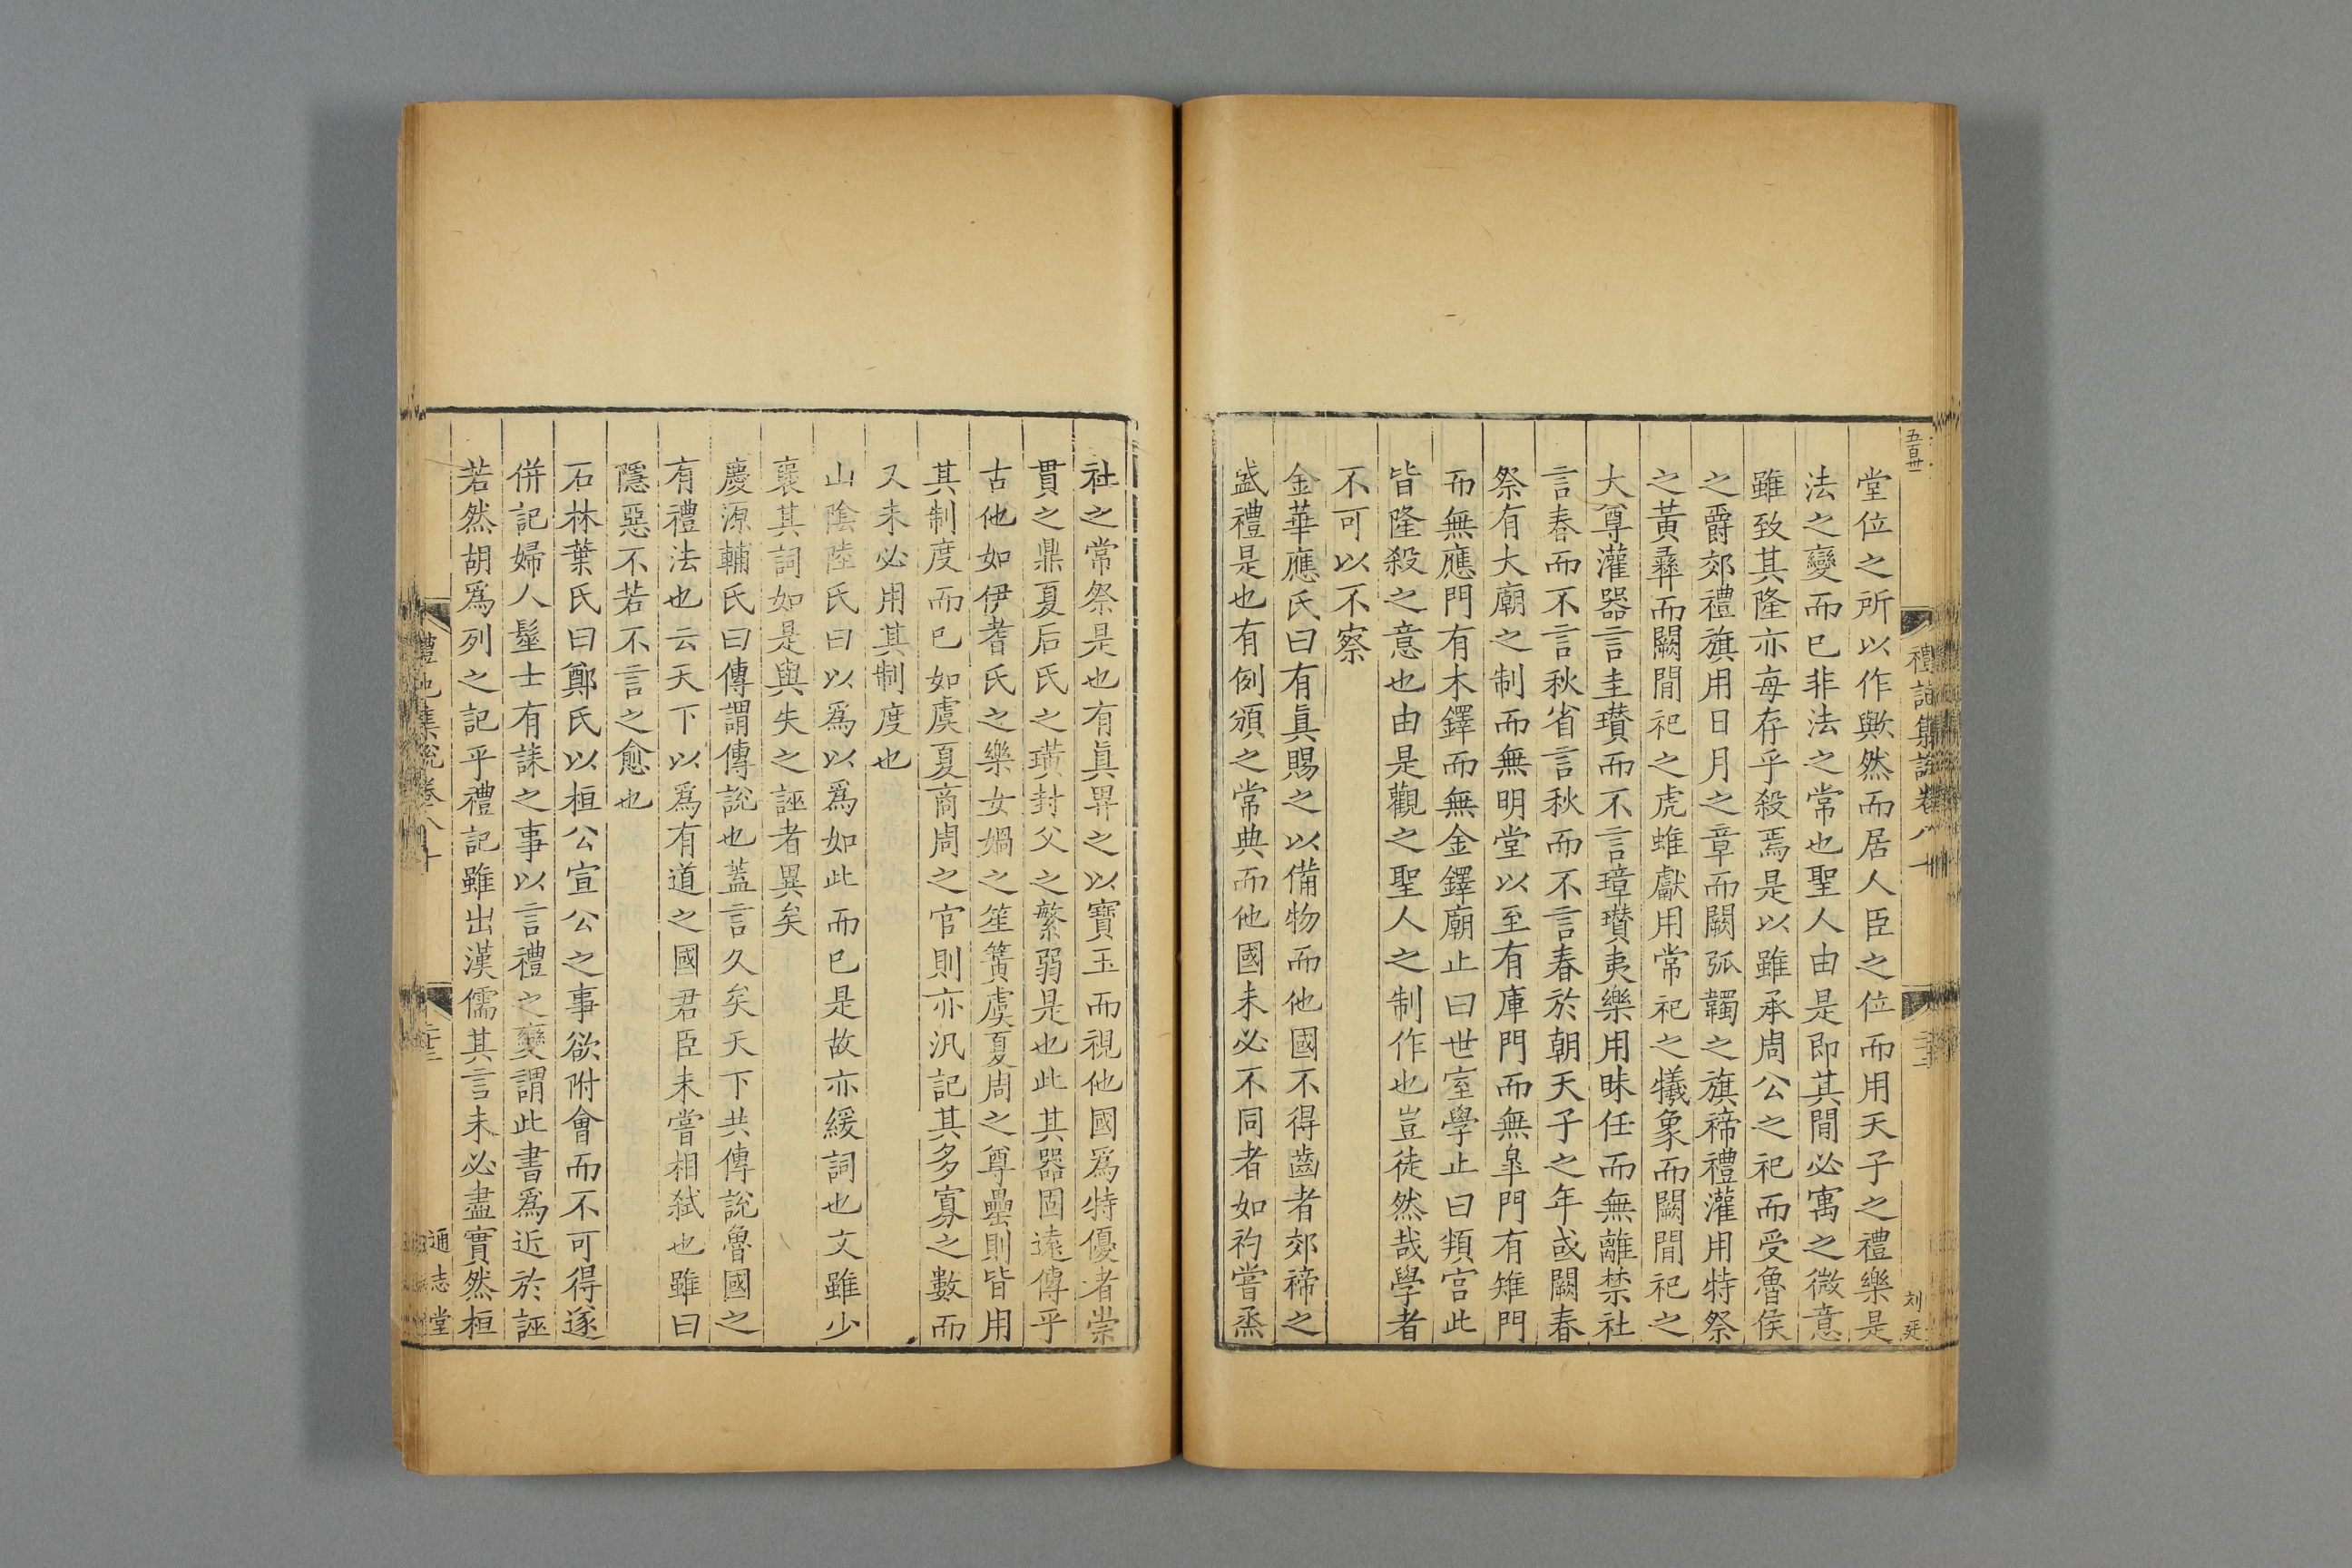 五百卅一
堂位之所以作歟然而居人臣之位而用天子之禮樂是
法之變而已非法之常也聖人由是即其間必寓之微意
雖致其隆亦每存乎殺焉是以雖承周公之祀而受魯侯
之爵郊禮旗用日月之章而闕弧韣之旗禘禮灌用特祭
之黃彝而闕間祀之虎蜼獻用常祀之犧象而闕間祀之
大尊灌器言圭瓚而不言璋瓚夷樂用昧任而無離禁社
言春而不言秋省言秋而不言春於朝天子之年或闕春
祭有大廟之制而無明堂以至有庫門而無臯門有雉門
而無應門有木鐸而無金鐸廟止曰世室學止曰頖宮此
皆隆殺之意也由是觀之聖人之制作也豈徒然哉學者
不可以不察
金華應氏曰有眞賜之以備物而他國不得齒者郊禘之
盛禮是也有例頒之常典而他國未必不同者如礿嘗烝
禮記集說卷八十
刘廷
社之常祭是也有眞畀之以寶玉而視他國爲特優者崇
貫之鼎夏后氏之璜封父之繁弱是也此其器固遠傳乎
古他如伊耆氏之樂女媧之笙簧虞夏周之尊罍則皆用
其制度而已如虞夏商周之官則亦汎記其多寡之數而
又未必用其制度也
山陰陸氏曰以爲以爲如此而已是故亦緩詞也文雖少
襄其詞如是與失之誣者異矣
慶源輔氏曰傳謂傳說也蓋言久矣天下共傳說魯國之
有禮法也云天下以爲有道之國君臣未嘗相弒也雖曰
隱惡不若不言之愈也
石林葉氏曰鄭氏以桓公宣公之事欲附會而不可得遂
併記婦人髽士有誄之事以言禮之變謂此書爲近於誣
若然胡爲列之記乎禮記雖出漢儒其言未必盡實然桓
禮記集說卷八十
通志堂